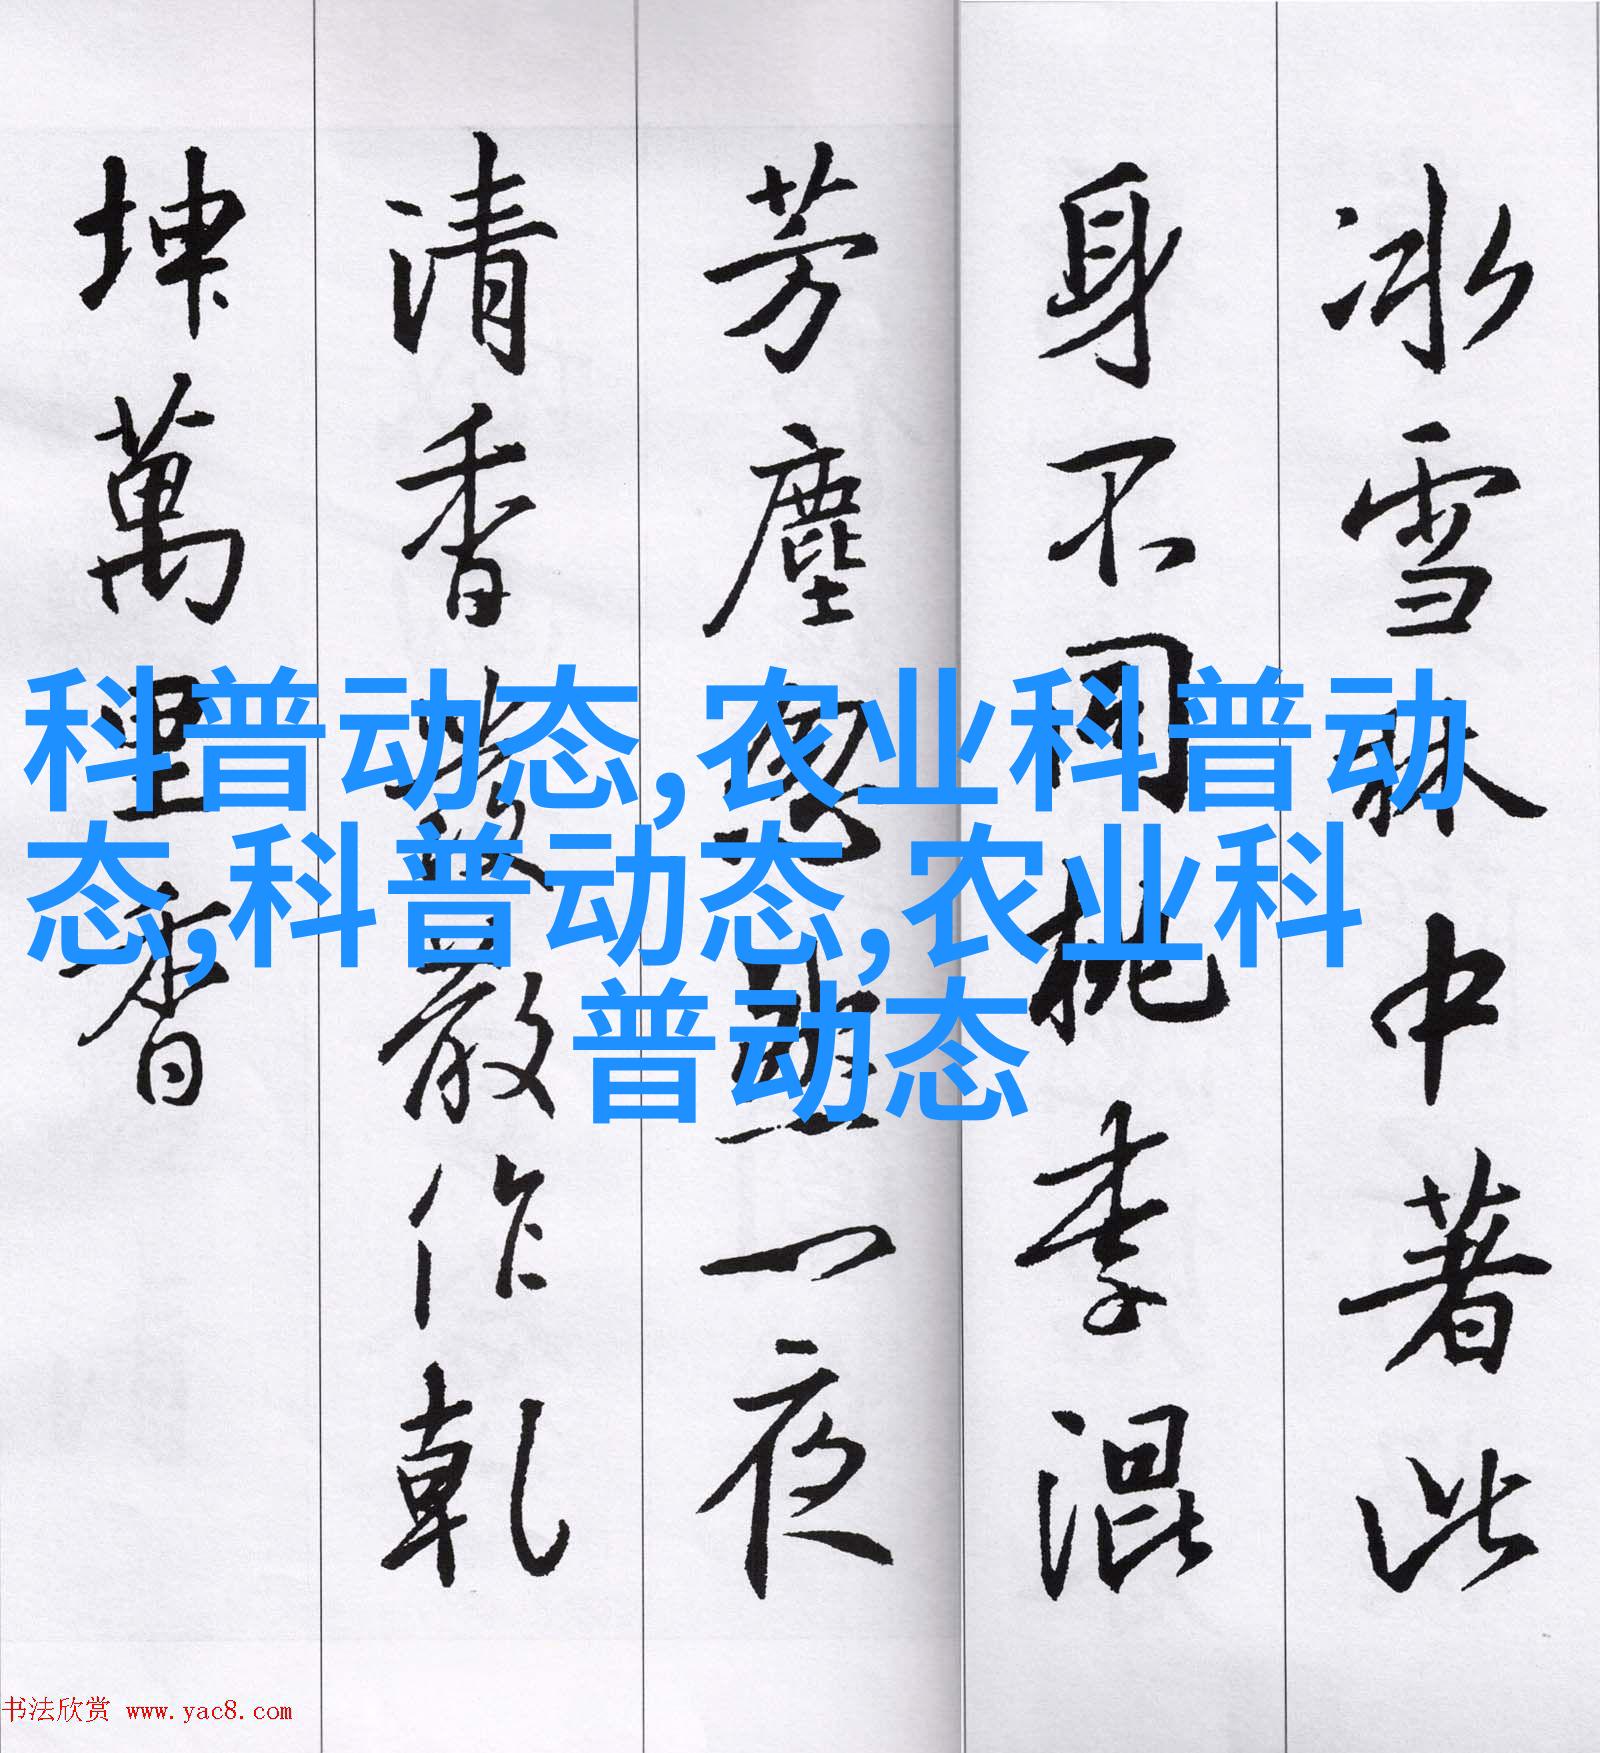 冰雪林中著此
身不同桃李混
芳塵忽然一夜
清香發散作乾
坤萬里香
科普动态,农业科普动
态,科普动态,农业科
普动态
书法欣赏 www.yac8.com